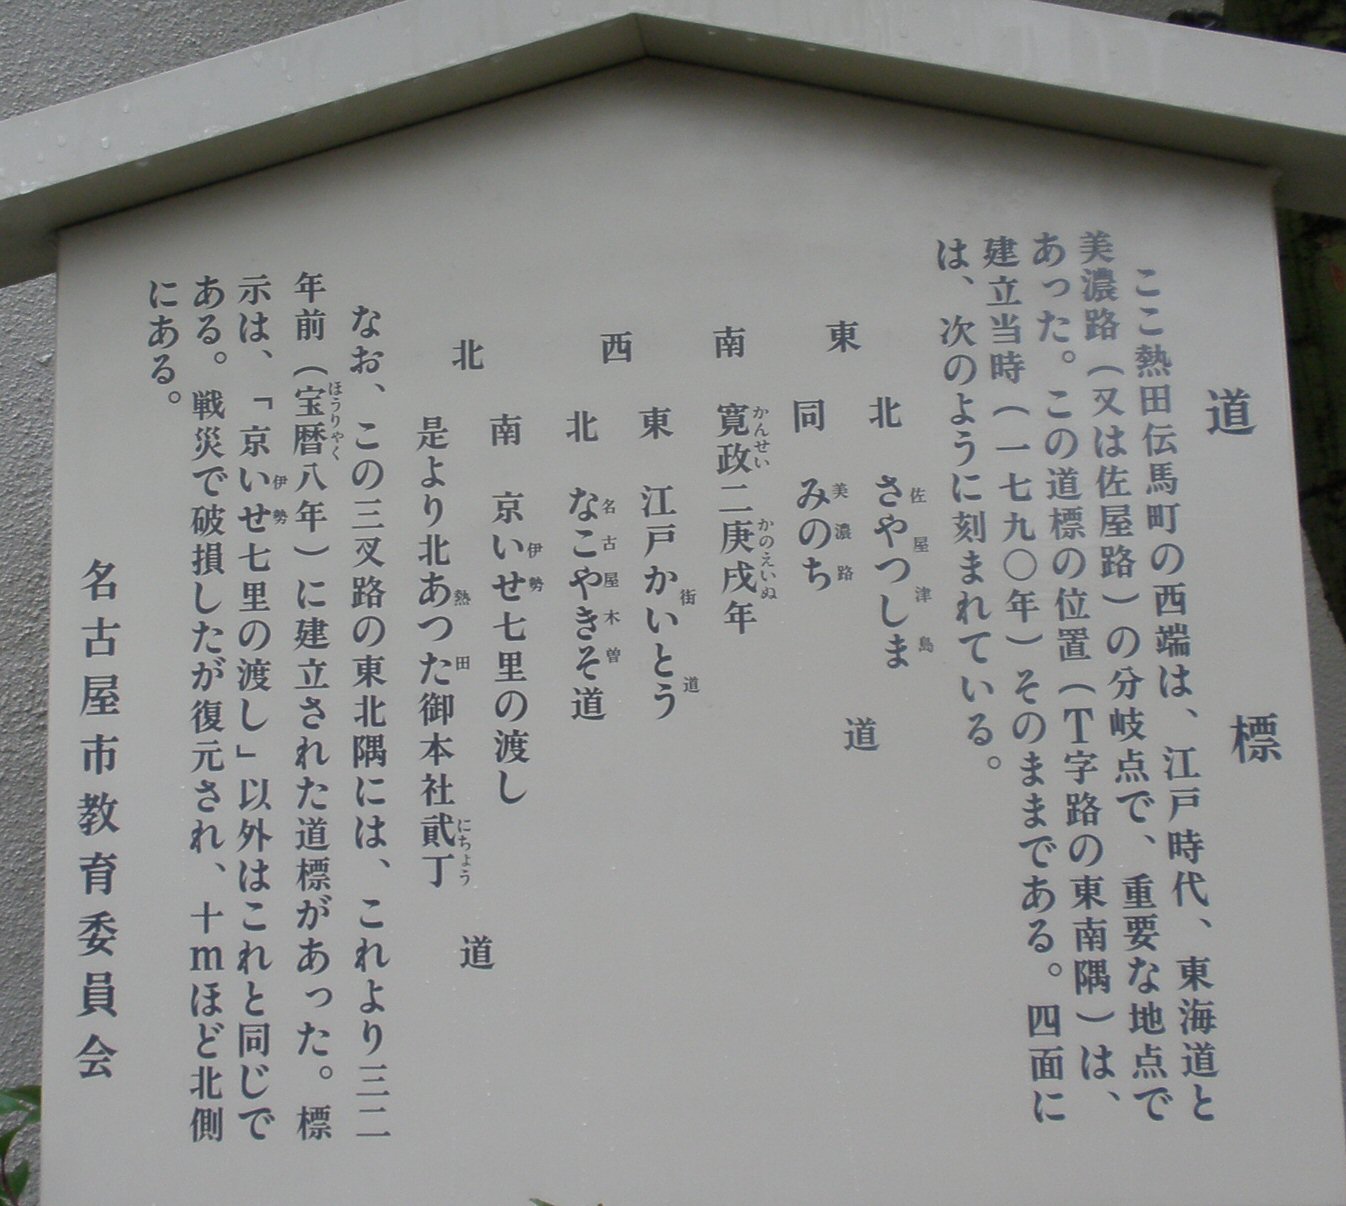 道標
ここ熱田伝馬町の西端は、江戸時代、東海道と
美濃路（又は佐屋路）の分岐点で、重要な地点で
あった。この道標の位置（T字路の東南隅）は、
建立当時（一七九〇年）そのままである。四面に
は、次のように刻まれている。
東　北　さやつしま　道
佐屋津島
同　みのち
美濃路
南　寛政二庚戌年
かんせい　かのえいぬ
西　東　江戸かいとう
街道
北　なこやきそ道
名古屋木曽
北　南　京いせ七里の渡し
伊勢
是より北あつた御本社貮丁　道
熱田　にちょう
なお、この三叉路の東北隅には、これより三二
年前（宝暦八年）に建立された道標があった。標
ほうりやく
示は、「京いせ七里の渡し」以外はこれと同じで
伊勢
ある。戦災で破損したが復元され、十mほど北側
にある。
名古屋市教育委員会